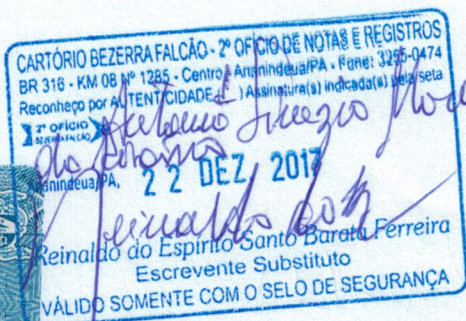 CARTÓRIO BEZERRA FALCÃO - 2º OFÍCIO DE NOTAS E REGISTROS
BR 316 - KM 08 Nº 1285 - Centro - Ananindeua/PA - Fone: 3255-0474
Reconheço por AUTENTICIDADE ( ) Assinatura(s) indicada(s) pela seta
2º OFÍCIO
BEZERRA FALCÃO
Antonio
Ananindeua/PA, 22 DEZ 2017
Reinaldo
Reinaldo do Espírito Santo Barata Ferreira
Escrevente Substituto
VÁLIDO SOMENTE COM O SELO DE SEGURANÇA